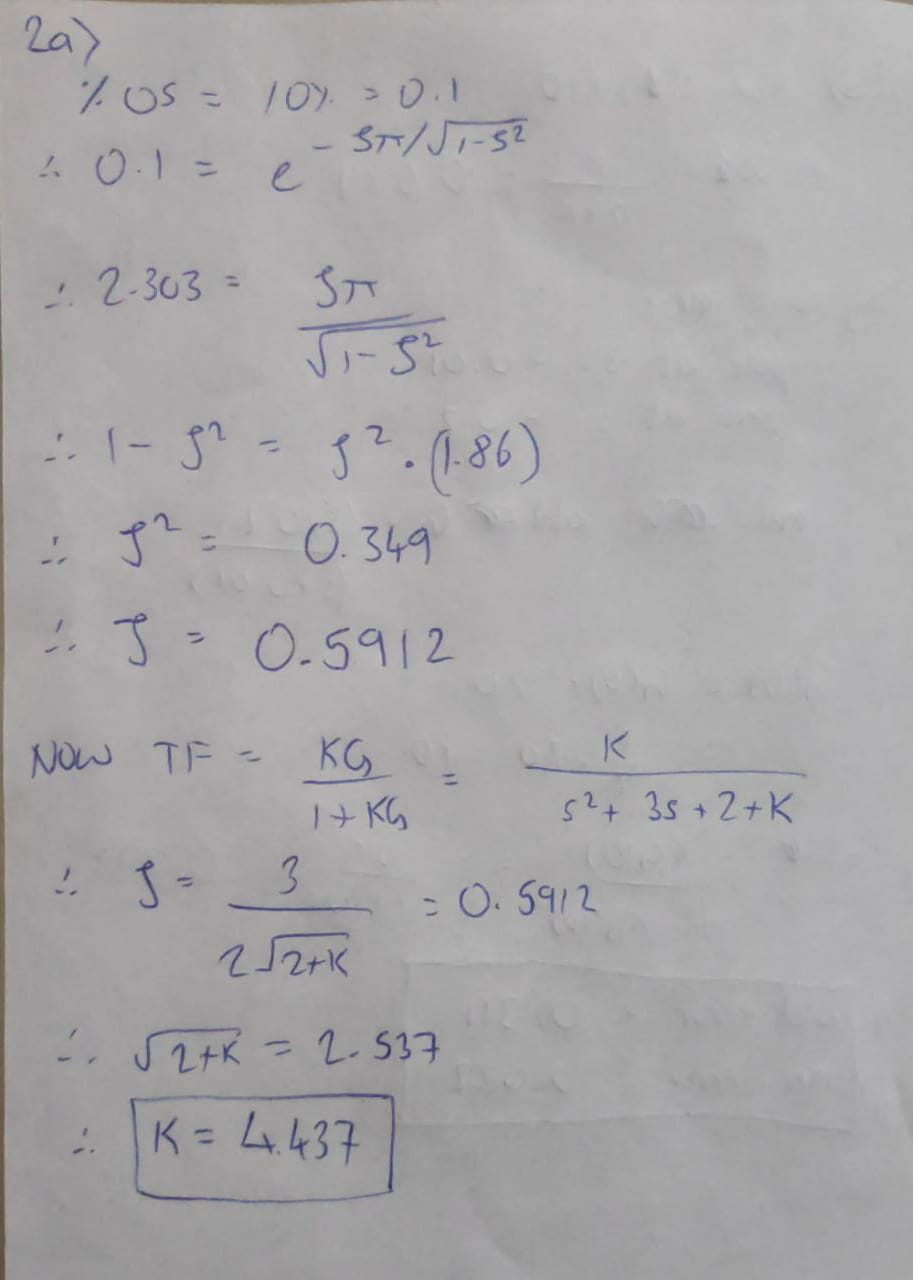 2a)
% OS = 10% = 0.1
∴ 0.1 = e^{-ζπ/√(1-ζ²)}
∴ 2.303 = ζπ / √(1-ζ²)
∴ 1-ζ² = ζ².(1.86)
∴ ζ² = 0.349
∴ ζ = 0.5912
NOW TF = KG / (1+KG) = K / (s²+3s+2+K)
∴ ζ = 3 / (2√(2+K)) = 0.5912
∴ √(2+K) = 2.537
∴ K = 4.437